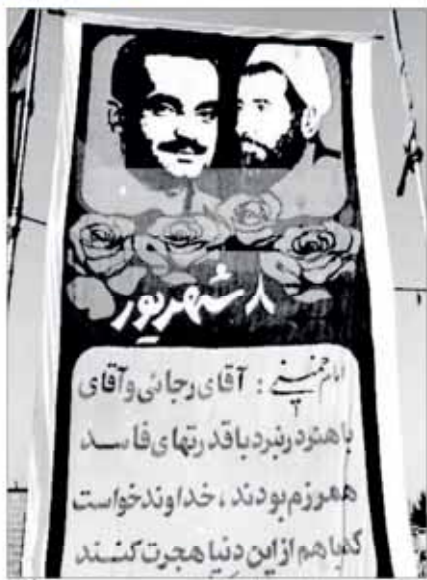 ۸ شهریور
امام خمینی : آقای رجائی و آقای
باهنر در نبرد با قدرتهای فاسد
همرزم بودند ، خداوند خواست
که باهم از این دنیا هجرت کنند